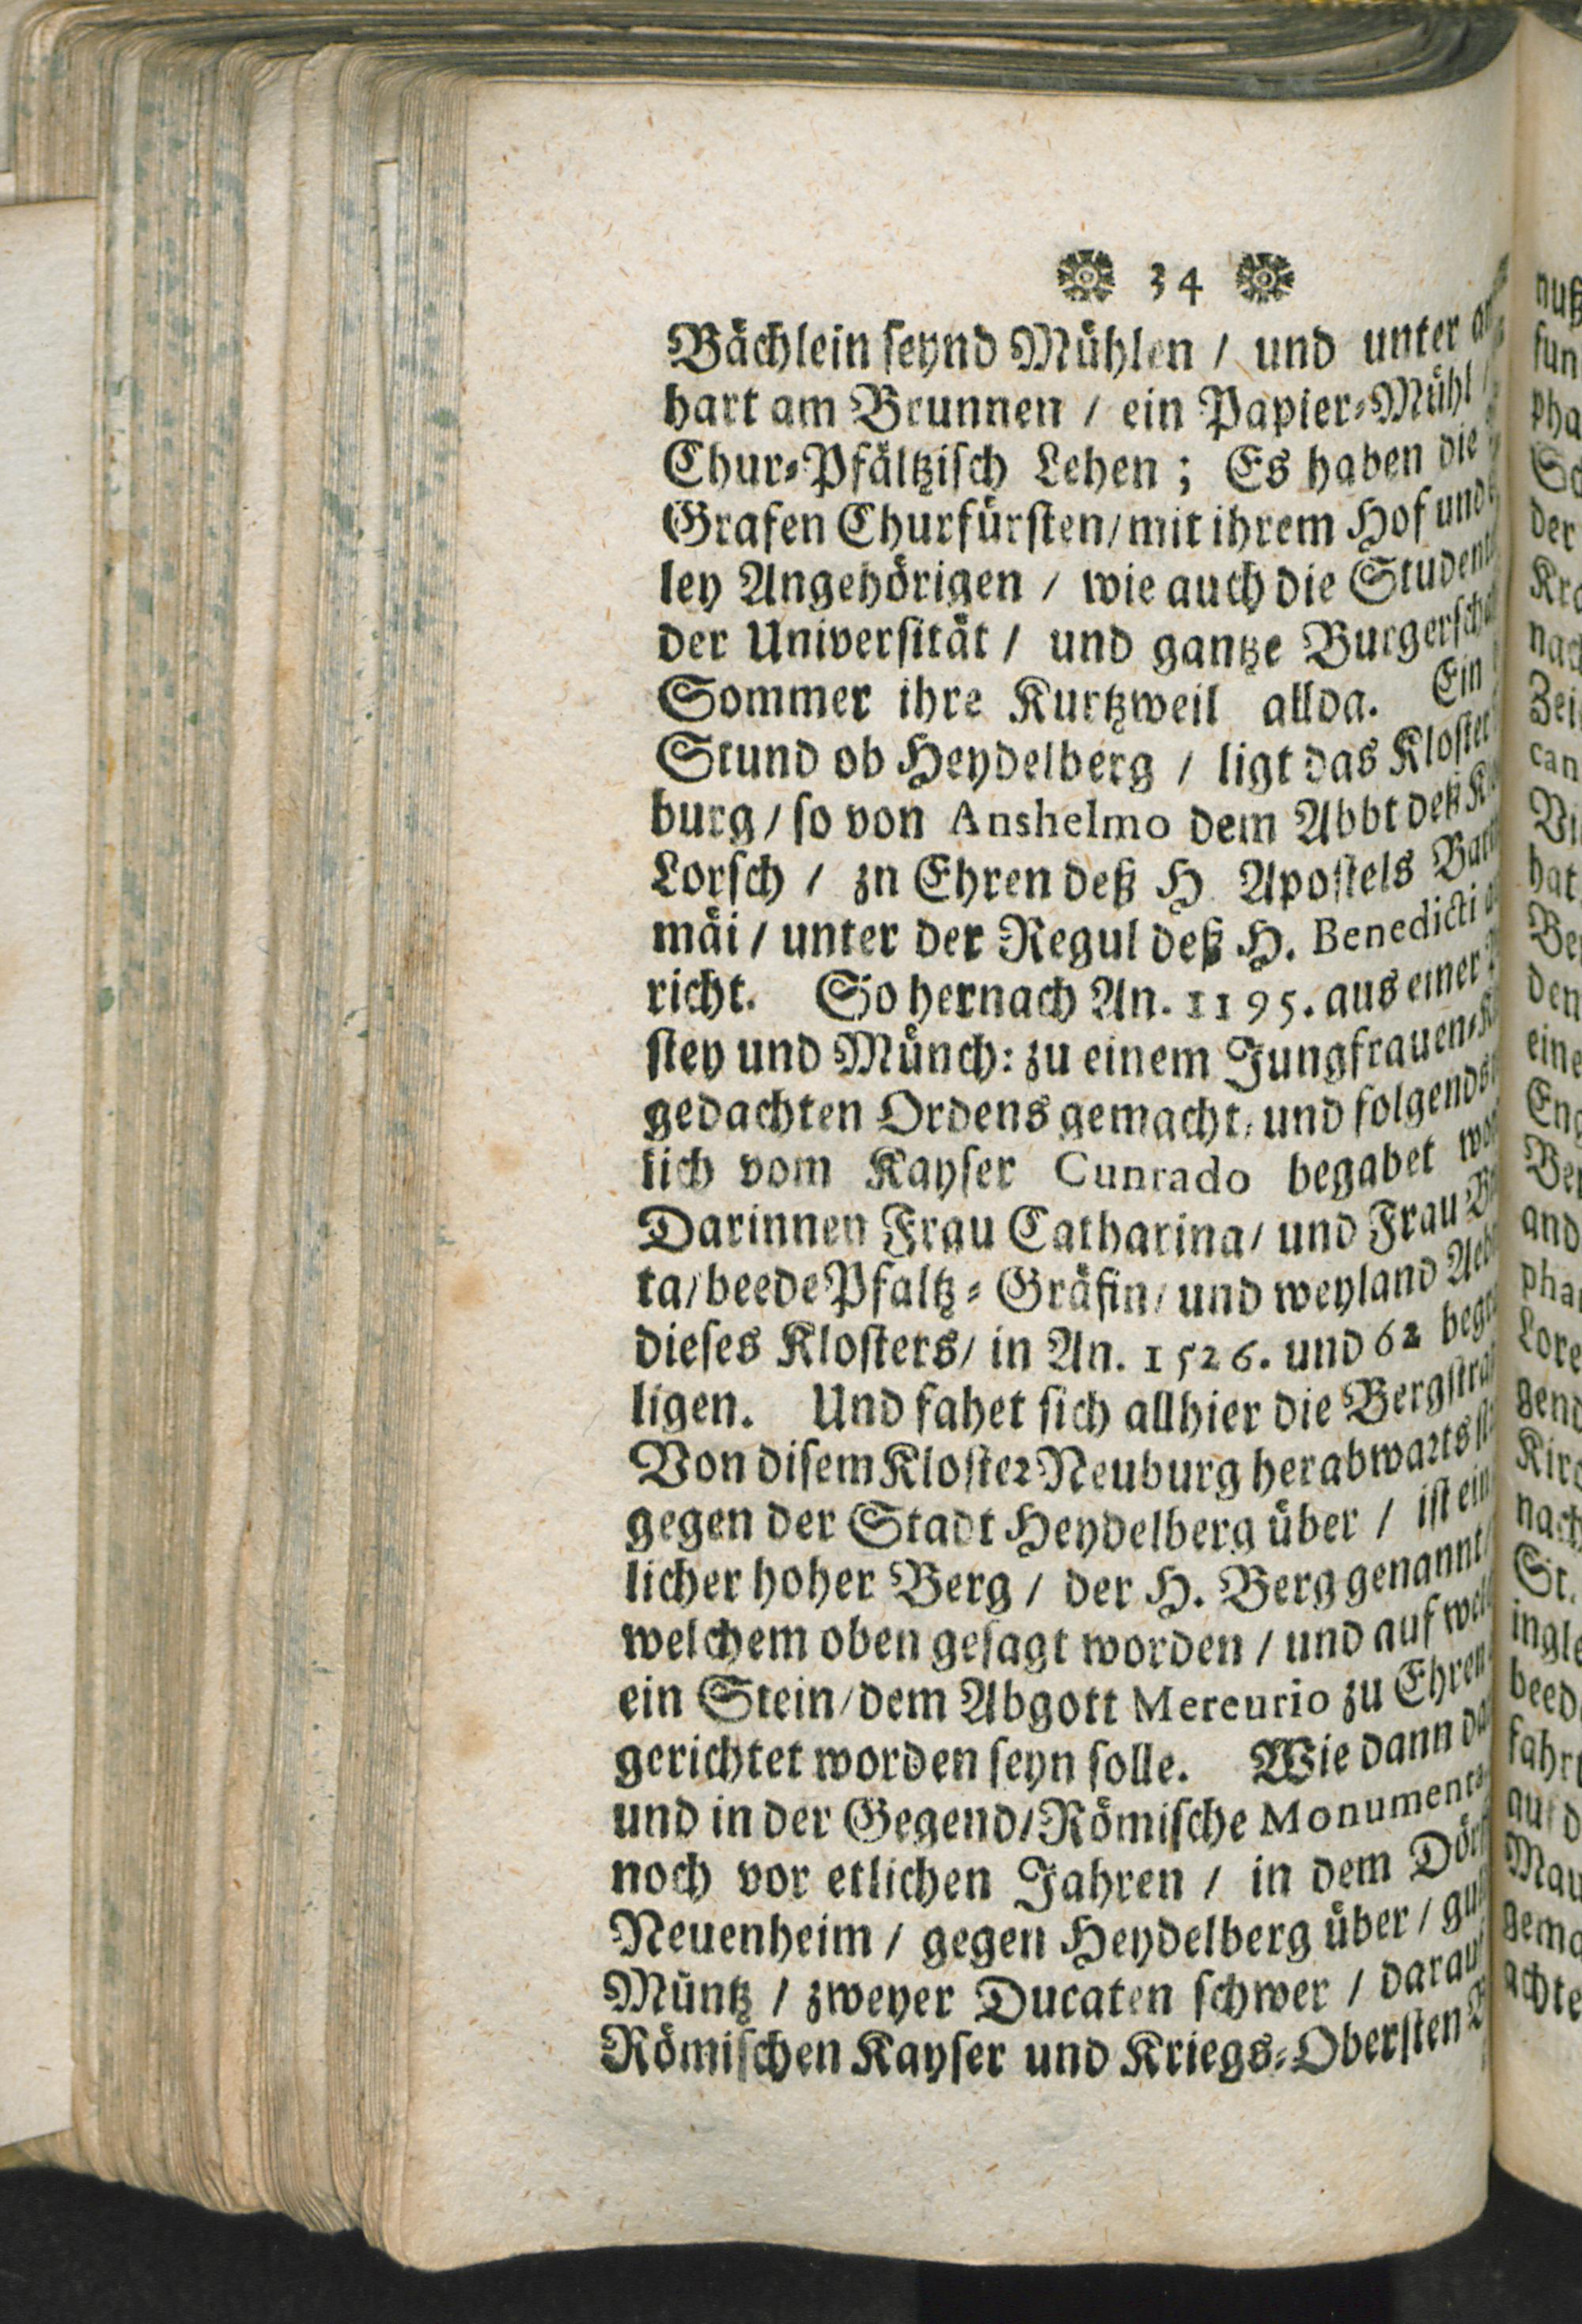 34
Bächlein seynd Mühlen / und unter
hart am Brunnen / ein Papier-Mühl /
Chur-Pfältzisch Lehen ; Es haben die
Grafen Churfürsten / mit ihrem Hof und
ley Angehörigen / wie auch die Student
der Universität / und gantze Burgerscha
Sommer ihre Kurtzweil allda. Ein
Stund ob Heydelberg / ligt das Kloster
burg / so von Anshelmo dem Abbt deß
Lorsch / zn Ehren deß H Apostels Bar
mäi / unter der Regul deß H. Benedicti
richt. So hernach An. 1195. aus einer
stey und Münch: zu einem Jungfrauen-
gedachten Ordens gemacht, und folgends
lich vom Kayser Cunrado begabet
Darinnen Frau Catharina / und Frau
ta / beede Pfaltz-Gräfin / und weyland Aeb
dieses Klosters / in An. 1526. und 62 begr
ligen. Und fahet sich allhier die Bergstra
Von disem Kloster Neuburg herabwarts
gegen der Stadt Heydelberg über / ist ein
licher hoher Berg / der H. Berg genannt /
welchem oben gesagt worden / und auf wel
ein Stein / dem Abgott Mercurio zu Ehren
gerichtet worden seyn solle. Wie dann da
und in der Gegend / Römische Monumenta
noch vor etlichen Jahren / in dem Dörf
Neuenheim / gegen Heydelberg über / gul
Müntz / zweyer Ducaten schwer / darau
Römischen Kayser und Kriegs-Obersten
nuß
fun
pha
Sc
der
nac
Zei
can
Vi
hat
Be
den
eine
Eng
Ber
and
pha
Lore
gend
Kirc
nach
St.
ingle
beed
fahrt
auf d
Mau
gema
achte